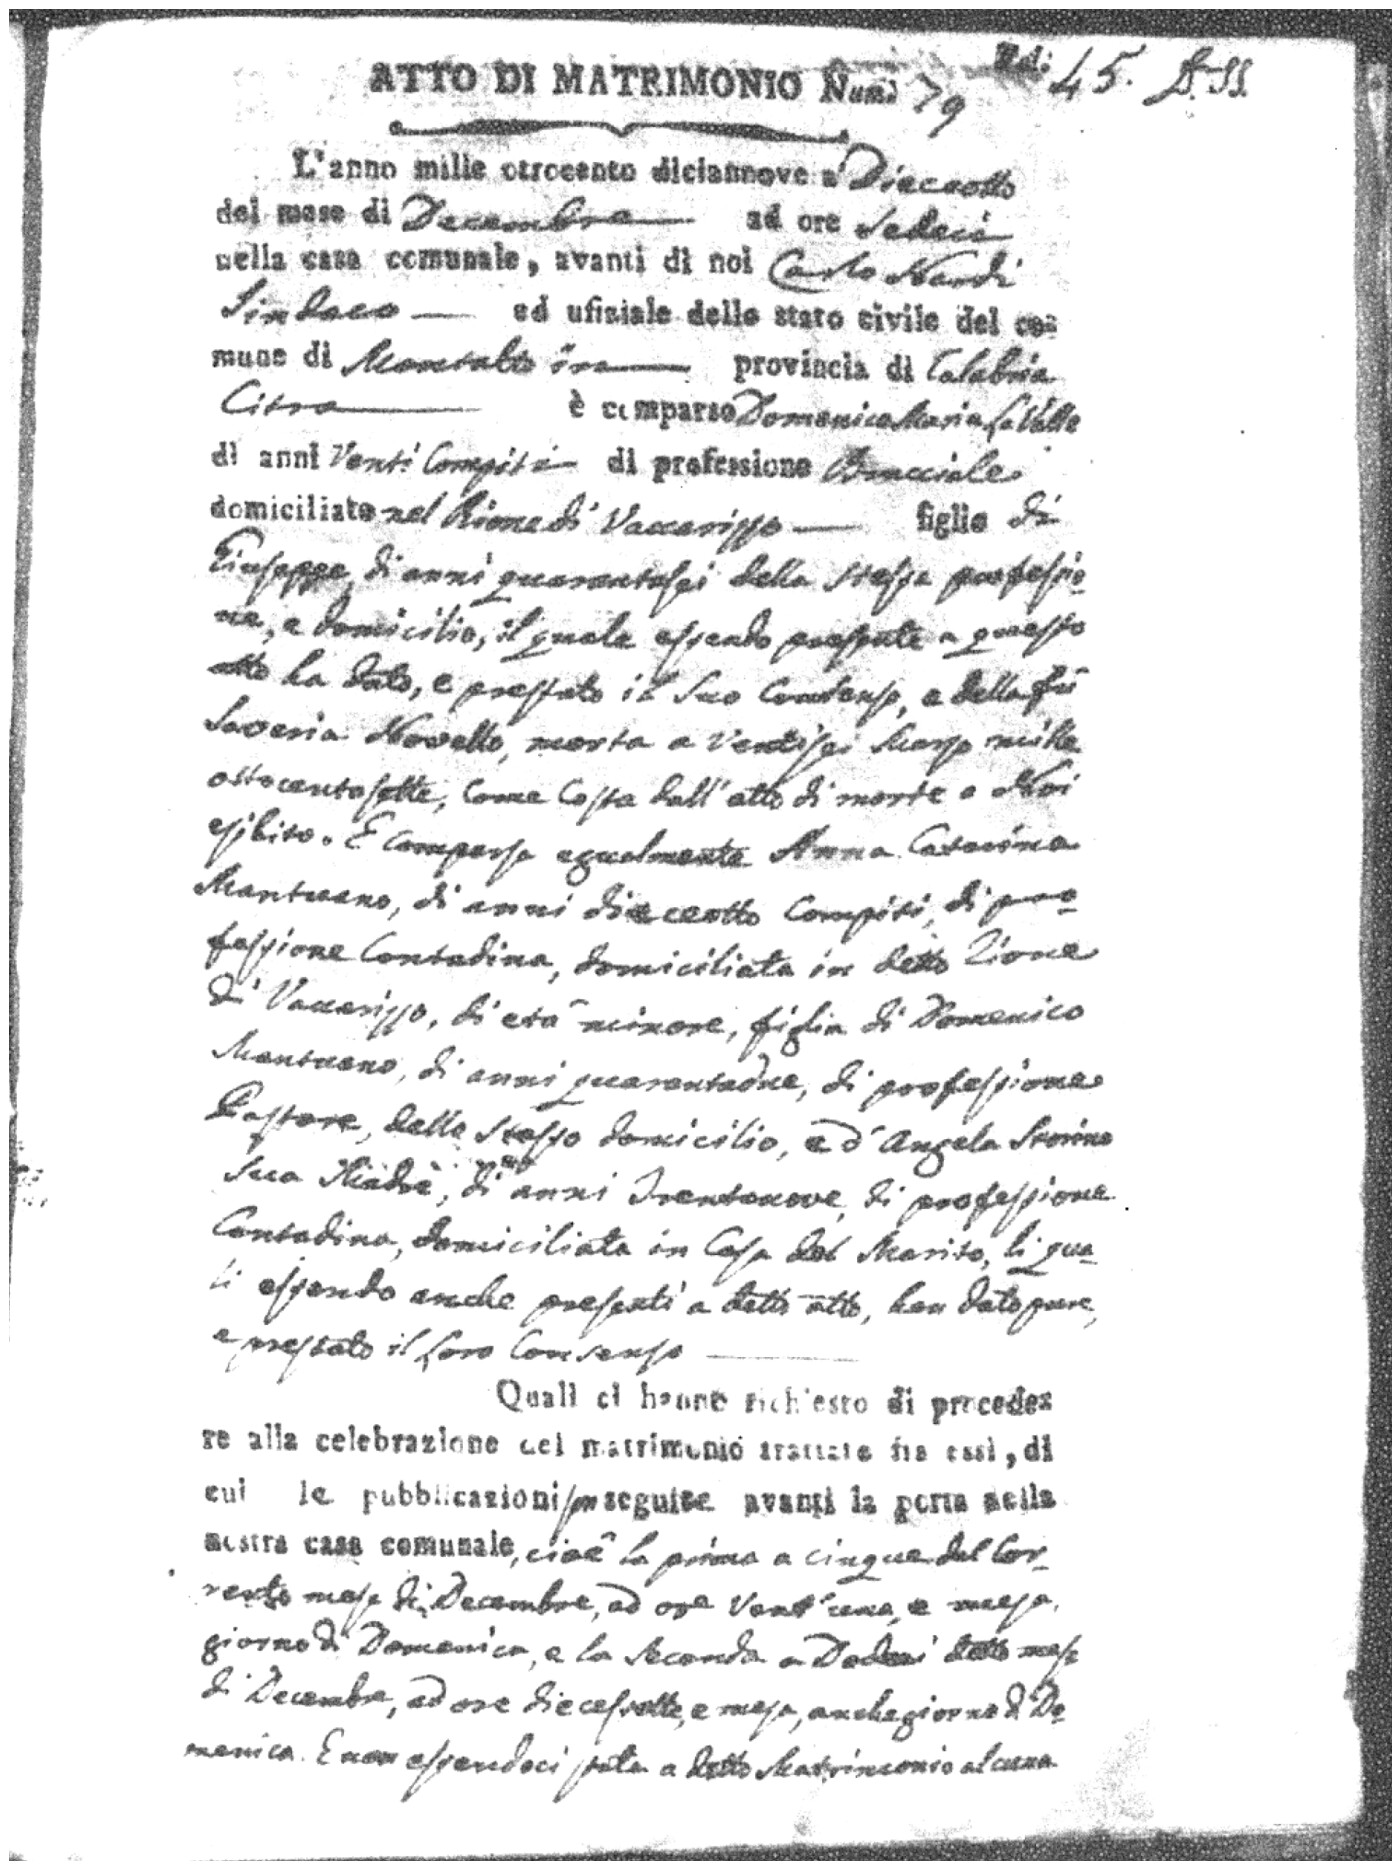 ATTO DI MATRIMONIO Num. 79
45.
L'anno mille ottocento diciannove a' Dieceotto
del mese di Decembre ad ore Sedeci
nella casa comunale, avanti di noi Carlo Nardi
Sindaco ed ufiziale dello stato civile del co=
mune di Montalto provincia di Calabria
Citra è comparso Domenico Maria La Valle
di anni Venti Compiti di professione Bracciale
domiciliato nel Rione di Vaccarizzo figlio di
Giuseppe, di anni quarantasei della stessa professio-
ne, e domicilio, il quale essendo presente a questo
atto ha dato, e prestato il suo Consenso, e della fù
Saveria Novello, morta a ventisei Marzo mille
ottocentosette, come costa dall'atto di morte a Noi
esibito. E comparsa egualmente Anna Catarina
Mantuano, di anni dieceotto compiti, di pro-
fessione Contadina, domiciliata in detto Rione
di Vaccarizzo, di età minore, figlia di Domenico
Mantuano, di anni quarantadue, di professione
Pastore, dello stesso domicilio, e d'Angela Storino
sua Madre, di anni Trentanove, di professione
Contadina, domiciliata in Casa del Marito, li qua-
li essendo anche presenti a detto atto, han dato pure,
e prestato il loro Consenso
Quali ci hanno richiesto di procede=
re alla celebrazione del matrimonio trattato fra essi, di
cui le pubblicazioni seguite avanti la porta della
nostra casa comunale, cioè la prima a cinque del Cor-
rente mese di Decembre, ad ore vent'una, e mezza,
giorno di Domenica, e la seconda a Dodeci detto mese
di Decembre, ad ore diecessette, e mezza, anche giorno di Do-
menica. E non essendoci stata a detto Matrimonio alcuna